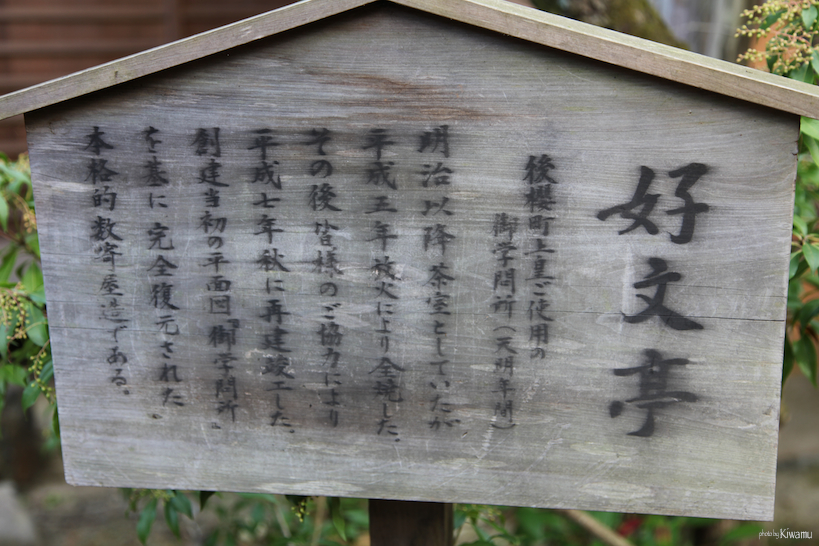 好文亭
後櫻町上皇ご使用の
御学問所（天明年間）
明治以降茶室としていたが
平成五年放火により全焼した。
その後皆様のご協力により
平成七年秋に再建竣工した。
創建当初の平面図『御学問所』
を基に完全復元された
本格的数寄屋造である。
photo by Kiwamu